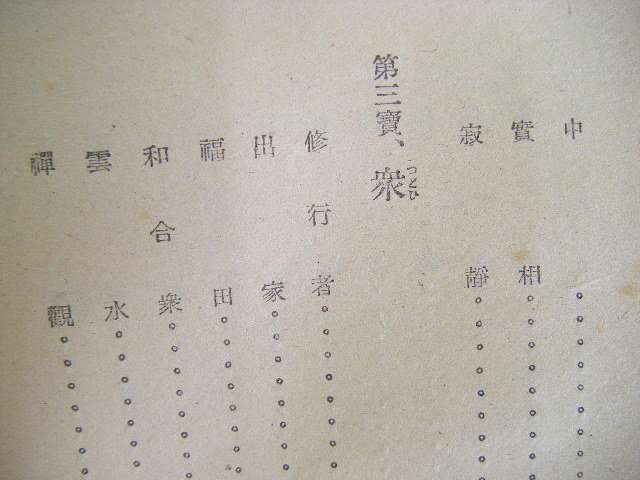 中
實相
寂靜
第三寶、衆
つどひ
修行者
出家
福田
和合衆
雲水
禪觀